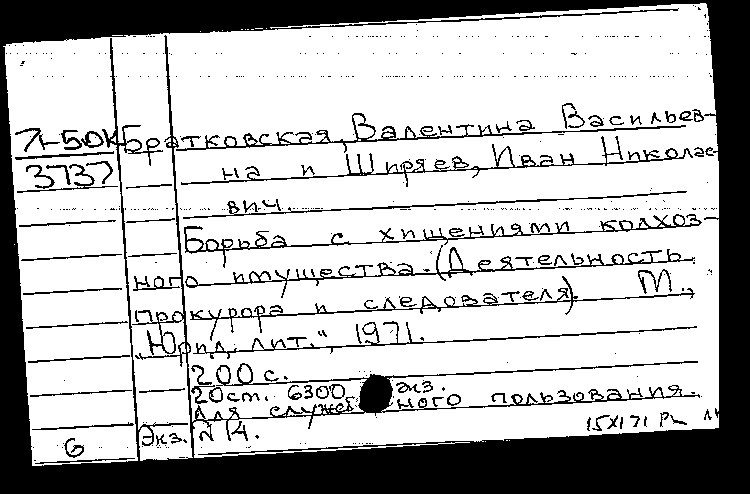 71-5ДК Братковская, Валентина Васильев-
3737 на и Ширяев, Иван Николае
вич.
Борьба с хищениями колхоз-
ного имущества. (Деятельность
прокурора и следователя). М.,
"Юрид. лит.", 1971.
200 с.
20 см. 6300 экз.
Для служебного пользования.
15 XI 71
6 Экз. N 14.